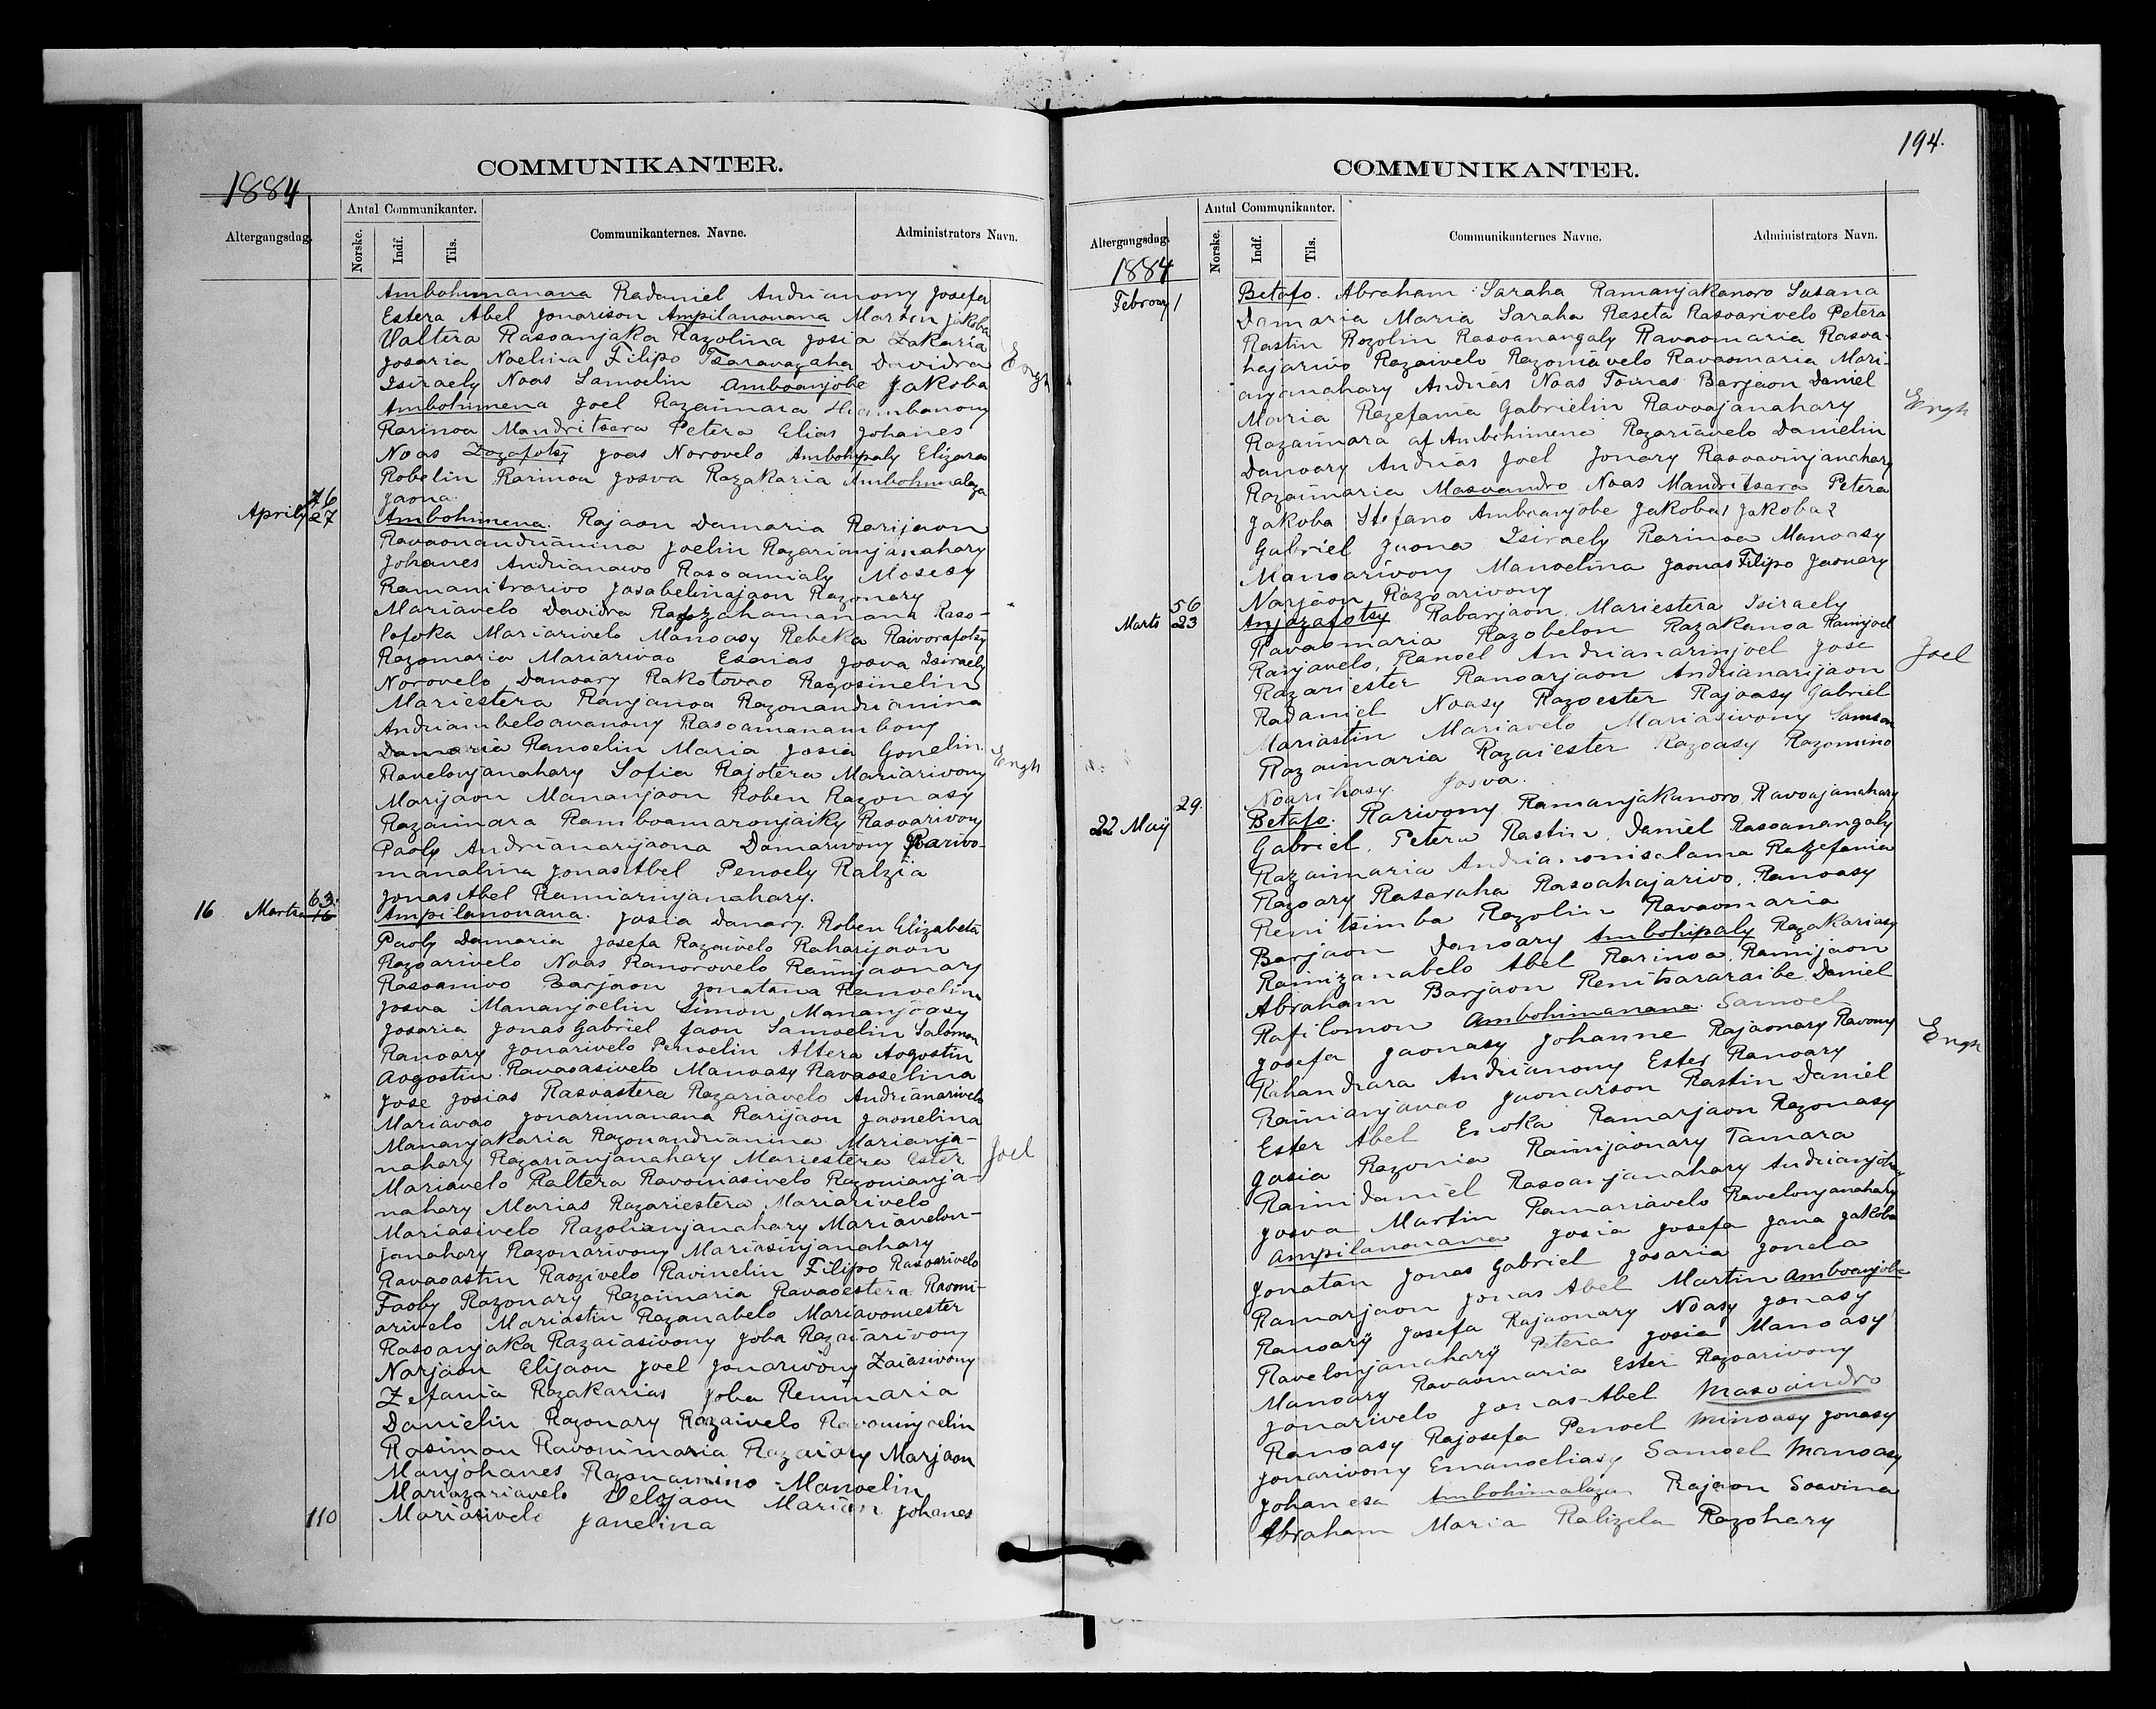 COMMUNIKANTER.
1884
Altergangsdag.
Antal Communikanter.
Norske.
Indf.
Tils.
Communikanternes. Navne.
Administrators Navn.
Ambohimanana Radaniel Andrianony Josefa
Estera Abel Jonarison Ampilanonana Martin Jakoba
Valtera Rasoanjaka Razolina Josia Zakaria
Josaria Noelina Filipo Tsaravazaha Davidra
Engh
Isiraely Noas Samoelin Amboanjobe Jakoba
Ambohimena Joel Razaimara
Rarinoa Mandritsara Petera Elias Johanes
Noas Zozafotsy Joas Norovelo Ambohipaly Elizara
Robelin Rarinoa Josva Razakaria Ambohimalaza
76 Jaona.
April 27 Ambohimena. Rajaon Damaria Rarijaon
Ravaonandrianina Joelin Razarianjanahary
Johanes Andrianaivo Rasoamialy Mosesy
Ramanitrarivo Josabelinajaon Razonary
Mariavelo Davidra Razahamanana Raso-
lofoka Mariarivelo Manoasy Rebeka Raivorafotsy
Razomaria Mariarivao Esaias Josva Isiraely
Norovelo Danoary Rakotovao Razosinelin
Mariestera Ranjanoa Razonandrianina
Andriambeloananony Rasoamanambony
Damaria Ranoelin Maria Josia Gonelin.
Engh
Ravelonjanahary Sofia Rajotera Mariarivony
Marijaon Mananjaon Roben Razonasy
Razaimara Ramboamaronjaiky Rasoarivony
Paoly Andrianarijaona Damarivony Rarivo-
manalina Jonas Abel Penoely Ralzia
63. Jonas Abel Ramiarinjanahary.
16 Martsa 16 Ampilanonana. Josia Danary. Roben Elizabeta
Paoly Damaria Josefa Razaivelo Raharijaon
Razoarivelo Noas Ranorovelo Rainijaonary
Rasoanivo Barjaon Jonatana Ranoelina
Josva Mananjoelin Simon Mananjoasy
Josaria Jonas Gabriel Jaon Samoelin Salomon
Ranoary Jonarivelo Penoelin Altera Aogostin
Aogostin Ravaoasivelo Manoasy Ravaoselina
Jose Josias Rasoastera Razariavelo Andrianarivelo
Mariavao Jonarimanana Rarijaon Jaonelina
Mananjakaria Razonandrianina Marianja-
Joel
nahary Razarianjanahary Mariestera Ester
Mariavelo Raltera Ravomasivelo Razonianja-
nahary Marias Razariestera Mariarivelo
Mariasivelo Razolianjanahary Mariavelon-
janahary Razonarivony Mariasinjanahary
Ravaoastin Raozivelo Ravinelin Filipo Rasoarivelo
Faoby Razonary Razaimaria Ravaoestera Raomi-
arivelo Mariastin Razanabelo Mariavomester
Rasoanjaka Razaiasivony Joba Razaiarivony
Narjaon Elijaon Joel Jonarivony Zaiasivony
Zefania Razakarias Joba Renimaria
Danielin Razonary Razaivelo Ravaominjoelin
Rasimon Ravonimaria Razaiary Marjaon
Manjohanes Razonamino Manoelin
Mariazariavelo Velojaon Marian Johanes
110 Mariasivelo Janelina
194.
COMMUNIKANTER.
Altergangsdag.
1884
Antal Communikanter.
Norske.
Indf.
Tils.
Communikanternes Navne.
Administrators Navn.
Februay 1 Betafo. Abraham Saraha Ramanjakanoro Susana
Damaria Maria Saraha Raseta Rasoarivelo Petera
Rastin Rozolin Rasoanangaly Ravaomaria Rasoa-
hajarivo Razaivelo Razoniavelo Ravaomaria Mari-
anjanahary Andrias Noas Tomas Barjaon Daniel
Engh
Maria Razefania Gabrielin Ravoajanahary
Razaimara af Ambohimena Razariavelo Danielin
Danoary Andrias Joel Jonary Rasoavinjanahary
Razaimaria Masoandro Noas Mandritsara Petera
Jakoba Stefano Amboanjobe Jakoba 1 Jakoba 2
Gabriel Jaona Isiraely Rarinoa Manoasy
Manoarivony Manoelina Jaonas Filipo Jaonary
56 Narjaon Razoarivony
Marts 23 Anjazafotsy Rabarjaon. Mariestera Isiraely
Ravaomaria Razobelon Razakanoa Rainijoel
Joel
Ranjavelo, Ranoel Andrianarinjoel Jose
Razariester Ranoarjaon Andrianarijaon
Radaniel Noasy Razoester Rajoasy Gabriel
Mariastin Mariavelo Mariasivony Samson
Razaimaria Razaiester Razoasy Razomino
29. Noarihasy. Josva.
22 Maÿ Betafo. Rarivony Ramanjakanoro, Ravoajanahary
Gabriel, Petera Rastin, Daniel Rasoanangaly
Razaimaria Andrianomisalama Razefania
Razoary Rasaraha Rasoahajarivo, Ranoasy
Renitsimba Razolin Ravaomaria
Barjaon Danoary Ambohipaly Razakariasy
Rainizanabelo Abel Rarinoa, Rainijaon
Abraham Barjaon Renitsararaibe Daniel
Rafilomon Ambohimanana. Samoel
Engh
Josefa Jaonasy Johanne Rajaonary Ravony
Rahandrara Andrianony Ester Ranoary
Rainianjavao Jaonarson Rastin Daniel
Ester Abel Enoka Ramarjaon Razonasy
Josia Razonia Rainijaonary Tamara
Rainidaniel Rasoanjanahary Andrianjohary
Josva Martin Ramariavelo Ravelonjanahary
Ampilanonana Josia Josefa Jana Jakoba
Jonatan Jonas Gabriel Josaria Jonela
Ramarjaon Jonas Abel Martin Amboanjobe
Ranoarÿ Josefa Rajaonary Noasy Jonasy
Ravelonjanaharÿ Petera Josia Manoasy
Manoary Ravaomaria Ester Razoarivony
Jonarivelo Jonas-Abel Masoandro
Ranoasy Rajosefa Penoel Minoasy Jonasy
Jonarivony Emanoeliasy Samoel Manoasy
Johanesa Ambohimalaza Rajaon Soavina
Abraham Maria Ralizela Razohery